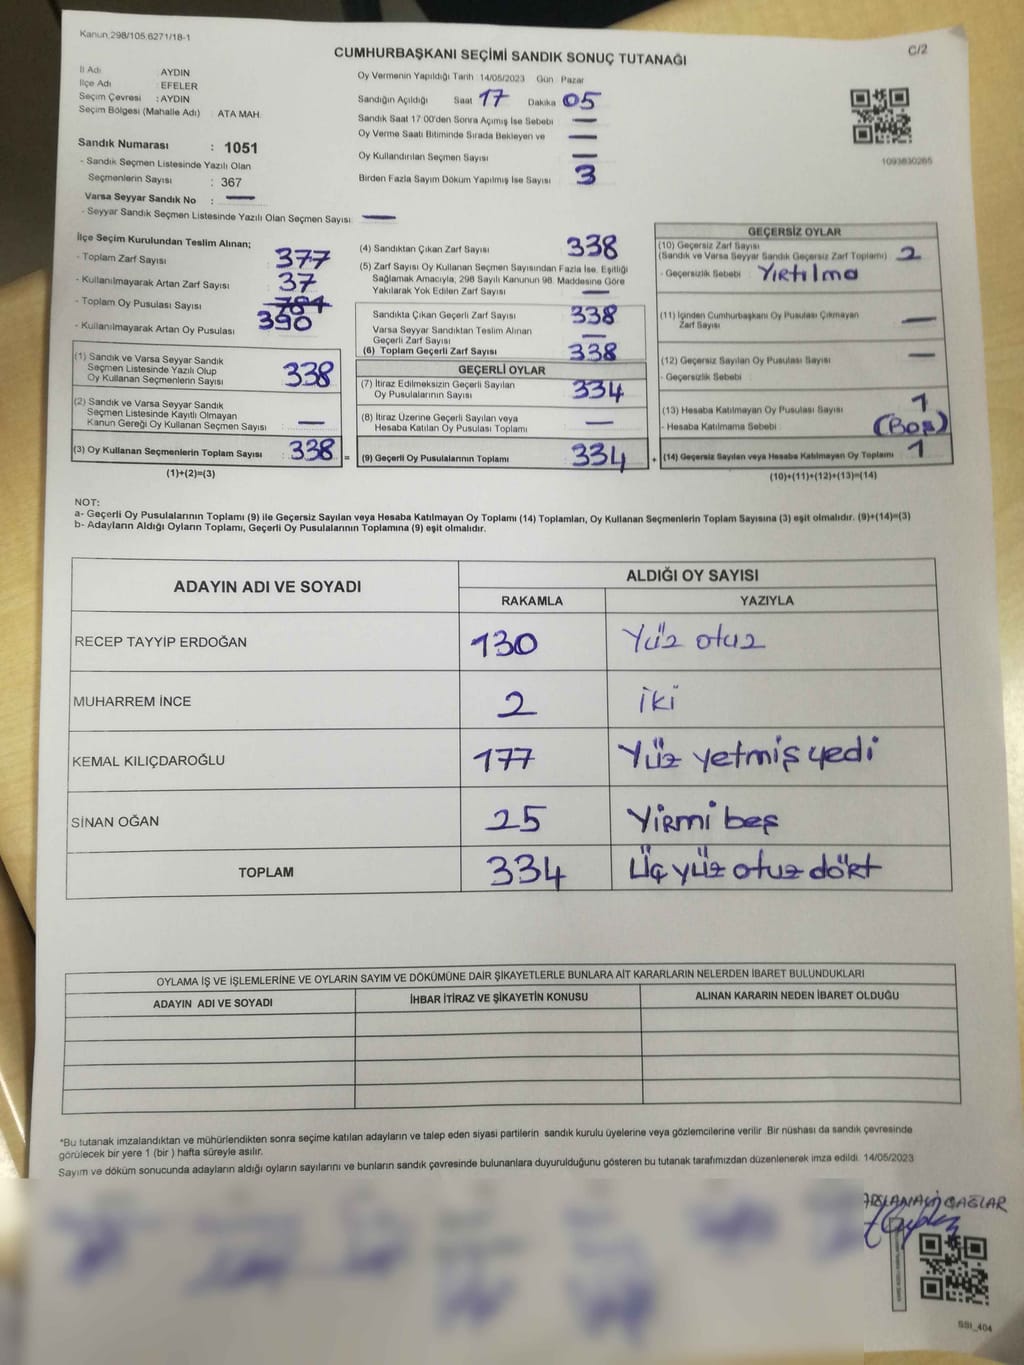 Kanun 298/105,6271/18-1
C/2
CUMHURBAŞKANI SEÇİMİ SANDIK SONUÇ TUTANAĞI
İl Adı : AYDIN
İlçe Adı : EFELER
Seçim Çevresi : AYDIN
Seçim Bölgesi (Mahalle Adı) : ATA MAH.
Sandık Numarası : 1051
- Sandık Seçmen Listesinde Yazılı Olan
Seçmenlerin Sayısı : 367
Varsa Seyyar Sandık No : —
- Seyyar Sandık Seçmen Listesinde Yazılı Olan Seçmen Sayısı —
Oy Vermenin Yapıldığı Tarih 14/05/2023 Gün Pazar
Sandığın Açıldığı Saat 17 Dakika 05
Sandık Saat 17:00'den Sonra Açımış İse Sebebi —
Oy Verme Saati Bitiminde Sırada Bekleyen ve —
Oy Kullandırılan Seçmen Sayısı —
Birden Fazla Sayım Döküm Yapılmış İse Sayısı 3
1093830265
İlçe Seçim Kurulundan Teslim Alınan;
- Toplam Zarf Sayısı 377
- Kullanılmayarak Artan Zarf Sayısı 37
- Toplam Oy Pusulası Sayısı
- Kullanılmayarak Artan Oy Pusulası 390
(1) Sandık ve Varsa Seyyar Sandık
Seçmen Listesinde Yazılı Olup
Oy Kullanan Seçmenlerin Sayısı 338
(2) Sandık ve Varsa Seyyar Sandık
Seçmen Listesinde Kayıtlı Olmayan
Kanun Gereği Oy Kullanan Seçmen Sayısı : —
(3) Oy Kullanan Seçmenlerin Toplam Sayısı : 338 =
(1)+(2)=(3)
(4) Sandıktan Çıkan Zarf Sayısı 338
(5) Zarf Sayısı Oy Kullanan Seçmen Sayısından Fazla İse, Eşitliği
Sağlamak Amacıyla, 298 Sayılı Kanunun 98. Maddesine Göre
Yakılarak Yok Edilen Zarf Sayısı —
Sandıkta Çıkan Geçerli Zarf Sayısı 338
Varsa Seyyar Sandıktan Teslim Alınan
Geçerli Zarf Sayısı —
(6) Toplam Geçerli Zarf Sayısı 338
GEÇERLİ OYLAR
(7) İtiraz Edilmeksizin Geçerli Sayılan
Oy Pusulalarının Sayısı 334
(8) İtiraz Üzerine Geçerli Sayılan veya
Hesaba Katılan Oy Pusulası Toplamı —
(9) Geçerli Oy Pusulalarının Toplamı 334 +
GEÇERSİZ OYLAR
(10) Geçersiz Zarf Sayısı
(Sandık ve Varsa Seyyar Sandık Geçersiz Zarf Toplamı) 2
- Geçersizlik Sebebi : Yırtılma
(11) İçinden Cumhurbaşkanı Oy Pusulası Çıkmayan
Zarf Sayısı —
(12) Geçersiz Sayılan Oy Pusulası Sayısı —
- Geçersizlik Sebebi :
(13) Hesaba Katılmayan Oy Pusulası Sayısı 1
- Hesaba Katılmama Sebebi : (Boş)
(14) Geçersiz Sayılan veya Hesaba Katılmayan Oy Toplamı 1
(10)+(11)+(12)+(13)=(14)
NOT:
a- Geçerli Oy Pusulalarının Toplamı (9) ile Geçersiz Sayılan veya Hesaba Katılmayan Oy Toplamı (14) Toplamları, Oy Kullanan Seçmenlerin Toplam Sayısına (3) eşit olmalıdır. (9)+(14)=(3)
b- Adayların Aldığı Oyların Toplamı, Geçerli Oy Pusulalarının Toplamına (9) eşit olmalıdır.
ADAYIN ADI VE SOYADI
ALDIĞI OY SAYISI
RAKAMLA YAZIYLA
RECEP TAYYİP ERDOĞAN 130 Yüz otuz
MUHARREM İNCE 2 iki
KEMAL KILIÇDAROĞLU 177 Yüz yetmiş yedi
SİNAN OĞAN 25 Yirmi beş
TOPLAM 334 Üç yüz otuz dört
OYLAMA İŞ VE İŞLEMLERİNE VE OYLARIN SAYIM VE DÖKÜMÜNE DAİR ŞİKAYETLERLE BUNLARA AİT KARARLARIN NELERDEN İBARET BULUNDUKLARI
ADAYIN ADI VE SOYADI İHBAR İTİRAZ VE ŞİKAYETİN KONUSU ALINAN KARARIN NEDEN İBARET OLDUĞU
*Bu tutanak imzalandıktan ve mühürlendikten sonra seçime katılan adayların ve talep eden siyasi partilerin sandık kurulu üyelerine veya gözlemcilerine verilir. Bir nüshası da sandık çevresinde
görülecek bir yere 1 (bir ) hafta süreyle asılır.
Sayım ve döküm sonucunda adayların aldığı oyların sayılarını ve bunların sandık çevresinde bulunanlara duyurulduğunu gösteren bu tutanak tarafımızdan düzenlenerek imza edildi. 14/05/2023
ÇAĞLAR
SSI_404